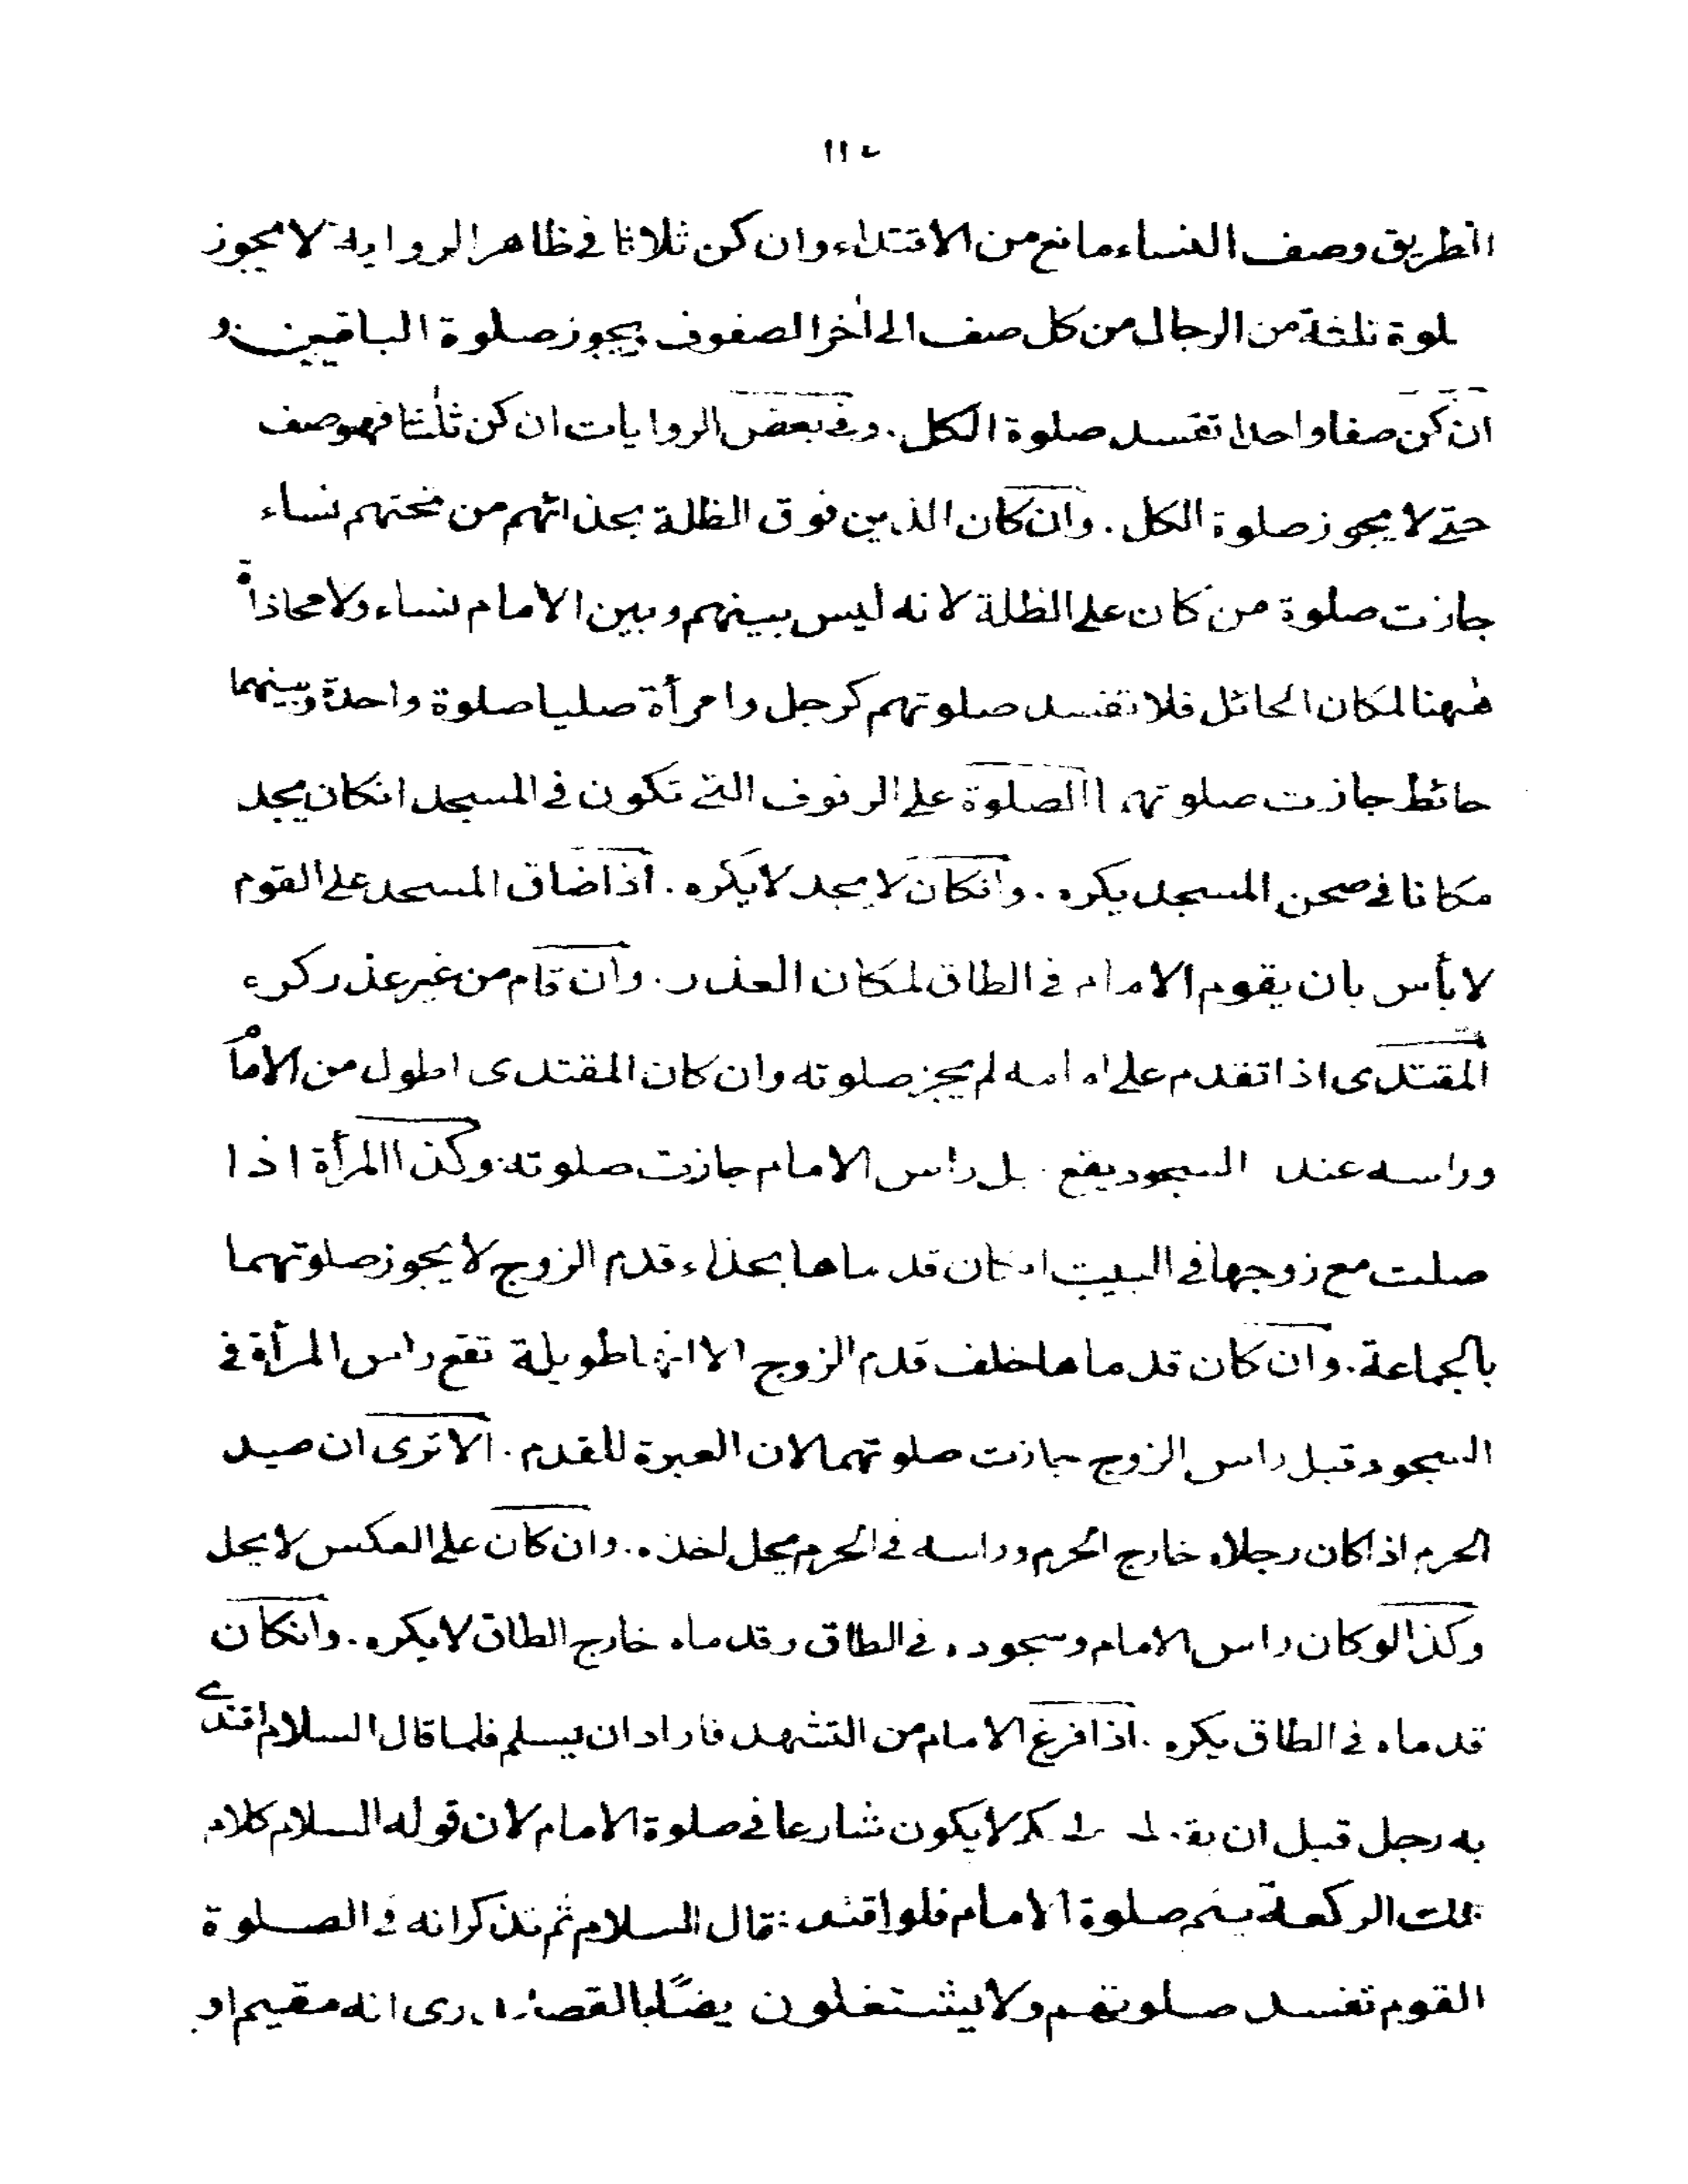 الطريق وصف النساء مانع من الاقتداء وان كن ثلاثا فى ظاهر الرواية لا يجوز
لوة ثلثة من الرجال من كل صف الى اٰخر الصفوف ويجوز صلوة الباقين و
ان كن صفا واحدا تفسد صلوة الكل. وفى بعض الروايات ان كن ثلٰثا فهو صف
حتى لا يجوز صلوة الكل. وان كان الذين فوق الظلة بحذائهم من تحتهم نساء
جازت صلوة من كان على الظلة لانه ليس بينهم وبين الامام نساء ولا محاذاة
هٰهنا لمكان الحائل فلا تفسد صلوتهم كرجل وامرأة صليا صلوة واحدة وبينهما
حائط جازت صلوتهما الصلوة على الرفوف التى تكون فى المسجد انكان يجد
مكانا فى صحن المسجد يكره. وانكان لا يجد لا يكره. اذا ضاق المسجد على القوم
لا بأس بان يقوم الامام فى الطاق لمكان العذر. وان قام من غير عذر كره
المقتدى اذا تقدم على امامه لم يجز صلوته وان كان المقتدى اطول من الامام
وراسه عند السجود يقع بل راس الامام جازت صلوته. وكذا المرأة اذا
صلت مع زوجها فى البيت انكان قدماها بحذاء قدم الزوج لا يجوز صلوتهما
بالجماعة. وان كان قدماها خلف قدم الزوج الا انها طويلة تقع راس المرأة فى
السجود قبل راس الزوج جازت صلوتهما لان العبرة للقدم. الا ترى ان صيد
الحرم اذا كان رجلاه خارج الحرم وراسه فى الحرم يحل اخذه. وان كان على العكس لا يحل
وكذا لو كان راس الامام وسجوده فى الطاق وقدماه خارج الطاق لا يكره. وانكان
قدماه فى الطاق يكره. اذا فرغ الامام من التشهد فاراد ان يسلم فلما قال السلام اقتدى
به رجل قبل ان يقول لا يكون شارعا فى صلوة الامام لان قوله السلام كلام
الركعة صلوة الامام فلو قال السلام ثم تذكر انه فى الصلوة
القوم تفسد صلوتهم ولا يشتغلون انه مقيم او